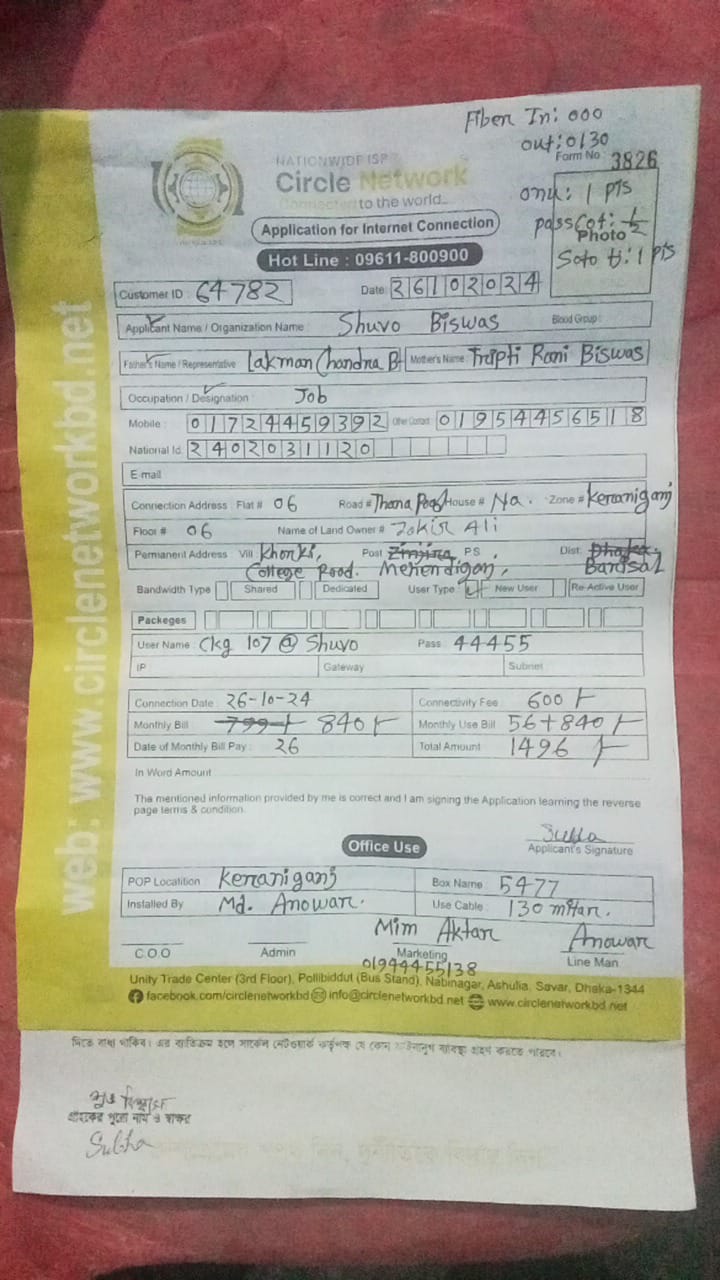 Fiber In: 000
out: 0130
Form No 3826
NATIONWIDE ISP
Circle Network
Connected to the world..
Application for Internet Connection
Hot Line : 09611-800900
onu: 1 pts
Photo
Customer ID : 64782 Date: 26102024
Applicant Name / Organization Name : Shuvo Biswas Blood Group :
Father's Name / Representative Lakman Chandra B Mother's Name Tripti Rani Biswas
Occupation / Designation : Job
Mobile : 01724459392 Other Contact 01954456518
National Id. 2402031120
E-mail
Connection Address : Flat # 06 Road # Thana Road House # Na. Zone # Keraniganj
Floor # 06 Name of Land Owner # Jokir Ali
Permanent Address : Vill Khorki, Post Zinjira P.S. Dist. Dhaka.
College Road. Mehendigon, Barisal
Bandwidth Type Shared Dedicated User Type : New User Re-Active User
Packeges
User Name : Ckg 107 @ Shuvo Pass : 44455
IP Gateway Subnet
Connection Date : 26-10-24 Connectivity Fee 600/-
Monthly Bill 799/- 840/- Monthly Use Bill 56+840/-
Date of Monthly Bill Pay : 26 Total Amount 1496/-
In Word Amount
The mentioned information provided by me is correct and I am signing the Application learning the reverse
page terms & condition.
Applicant's Signature
Office Use
POP Locatition Keraniganj Box Name 5477
Installed By Md. Anowar. Use Cable : 130 mitar.
Mim Aktar Anowar
C.O.O Admin Marketing Line Man
01944455138
Unity Trade Center (3rd Floor), Pollibiddut (Bus Stand), Nabinagar, Ashulia. Savar, Dhaka-1344
facebook.com/circlenetworkbd info@circlenetworkbd.net www.circlenetworkbd.net
web: www.circlenetworkbd.net
দিতে বাধ্য থাকিব। এর ব্যতিক্রম হলে সার্কেল নেটওয়ার্ক কর্তৃপক্ষ যে কোন আইনানুগ ব্যবস্থা গ্রহণ করতে পারবে।
গ্রাহকের পুরো নাম ও স্বাক্ষর